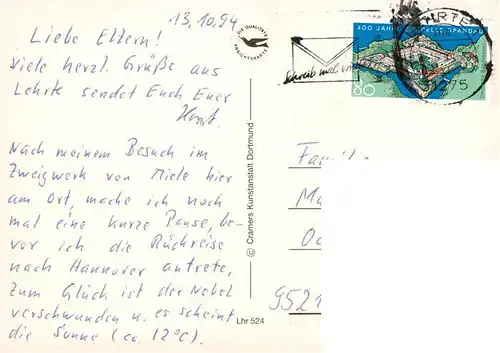 13.10.94
Liebe Eltern!
viele herzl. Grüße aus
Lehrte sendet Euch Euer
Horst.
Nach meinem Besuch im
Zweigwerk von Miele hier
am Ort, mache ich noch
mal eine kurze Pause, be-
vor ich die Rückreise
nach Hannover antrete,
zum Glück ist der Nebel
verschwunden u. es scheint
die Sonne (ca. 12°C).
DIE QUALITÄTS
ANSICHTSKARTE
© Cramers Kunstanstalt Dortmund
Lhr 524
400 JAHRE SPANDAU
80
Schreib mal
HRTE
31275
Fami
Ma
O
9521